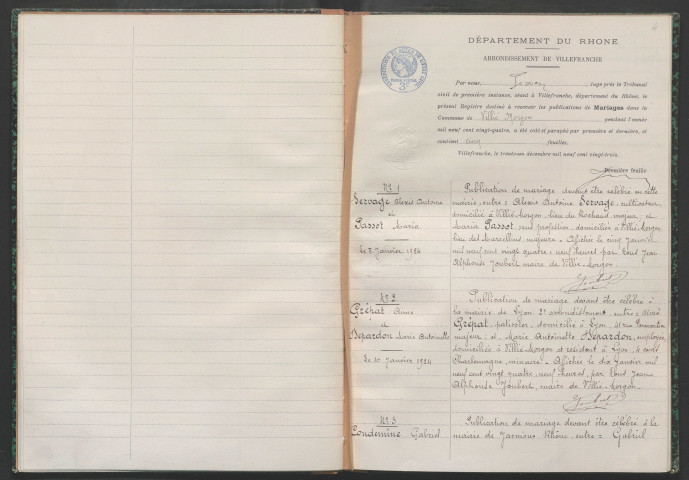 DÉPARTEMENT DU RHONE
ARRONDISSEMENT DE VILLEFRANCHE
Par nous, juge près le Tribunal
civil de première instance, séant à Villefranche, département du Rhône, le
présent Registre destiné à recevoir les publications de Mariages dans la
Commune de Villié Morgon pendant l'année
mil neuf cent vingt-quatre, a été coté et paraphé par première et dernière, et
contient cinq feuilles.
Villefranche, le trente-un décembre mil neuf cent vingt-trois.
Première feuille
N° 1
Servage Alexis Antoine
et
Passot Maria
le 5 Janvier 1924
Publication de mariage devant être célébré en cette
mairie, entre : Alexis Antoine Servage, cultivateur
domicilié à Villié-Morgon, lieu du majeur, et
Maria Passot sans profession, domiciliée à Villié-Morgon
lieu des Marcellins majeure. Affichée le cinq Janvier
mil neuf cent vingt quatre, neuf heures par Nous Jean
Alphonse Joubert maire de Villié-Morgon.
Joubert
N° 2
Grépat Aimé
et
Bépardon Marie Antoinette
Le 10 Janvier 1924
Publication de mariage devant être célébré à
la mairie de Lyon 2e arrondissement, entre : Aimé
Grépat, patissier, domicilié à Lyon rue
majeur : et Marie Antoinette Bépardon, employée,
domiciliée à Villié-Morgon et résidant à Lyon, cours
Charlemagne, mineure. Affichée le dix Janvier mil
neuf cent vingt quatre, neuf heures, par Nous Jean
Alphonse Joubert, maire de Villié-Morgon.
Joubert
N° 3
Condemine Gabriel
Publication de mariage devant être célébré à la
mairie de Jarnioux Rhône, entre = Gabriel